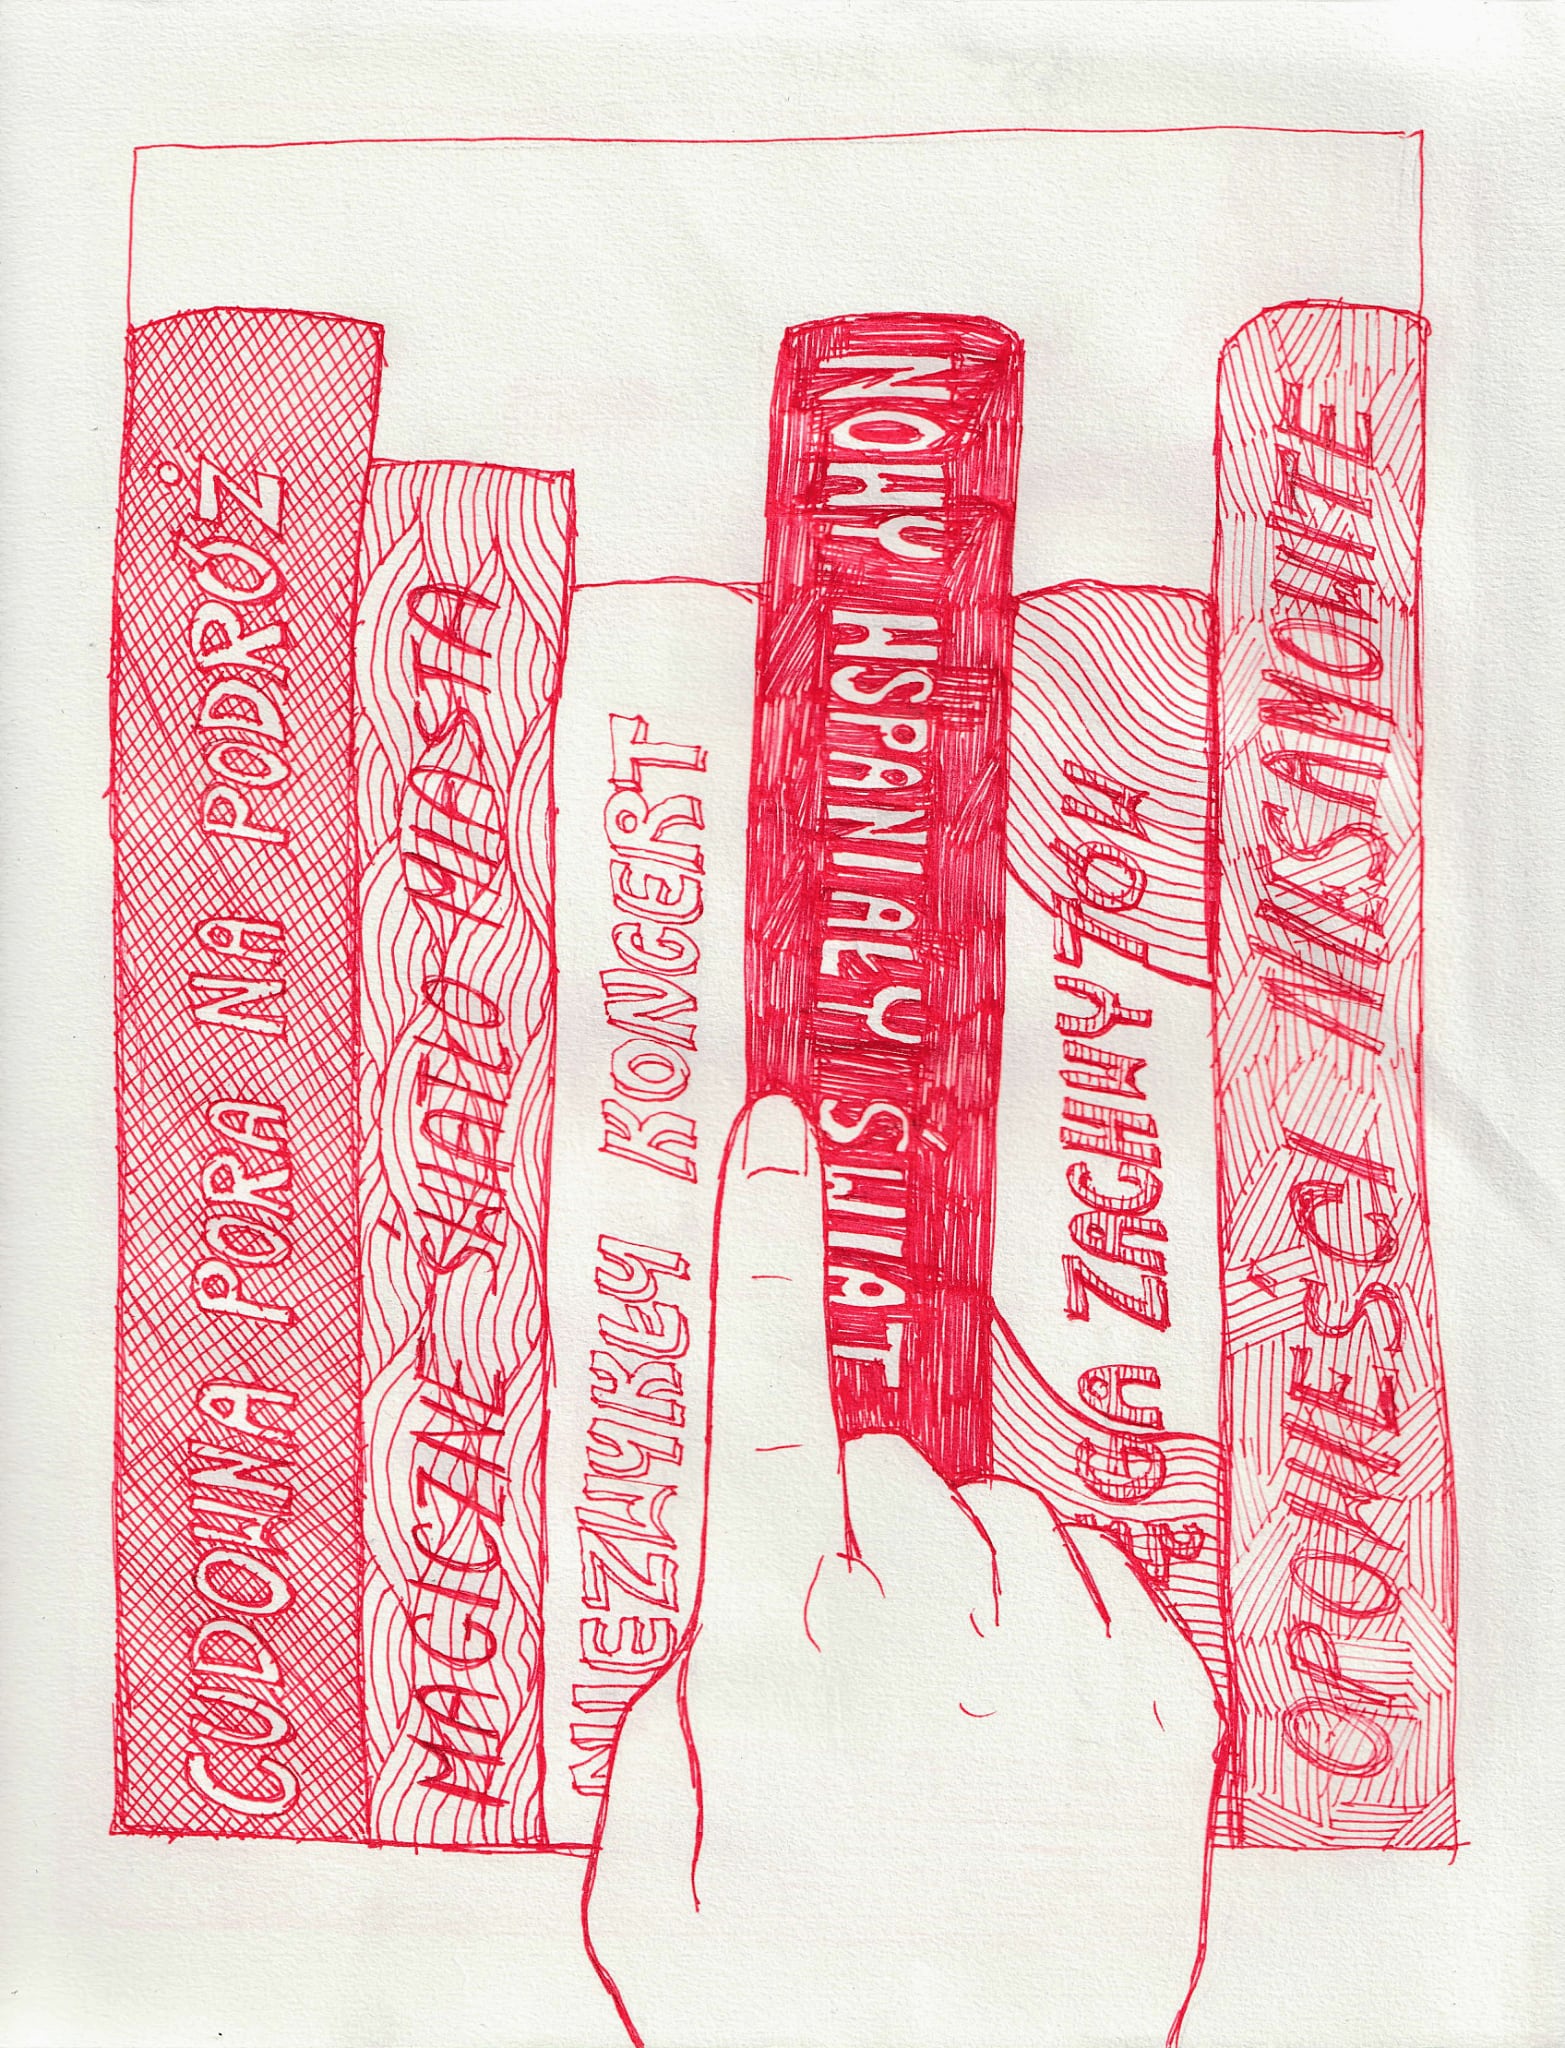 CUDOWNA PORA NA PODRÓŻ
MAGICZNE ŚWIATŁO MIASTA
NIEZWYKŁY KONCERT
NOWY WSPANIAŁY ŚWIAT
GA ZACHWYTÓW
OPOWIEŚCI NIESAMOWITE